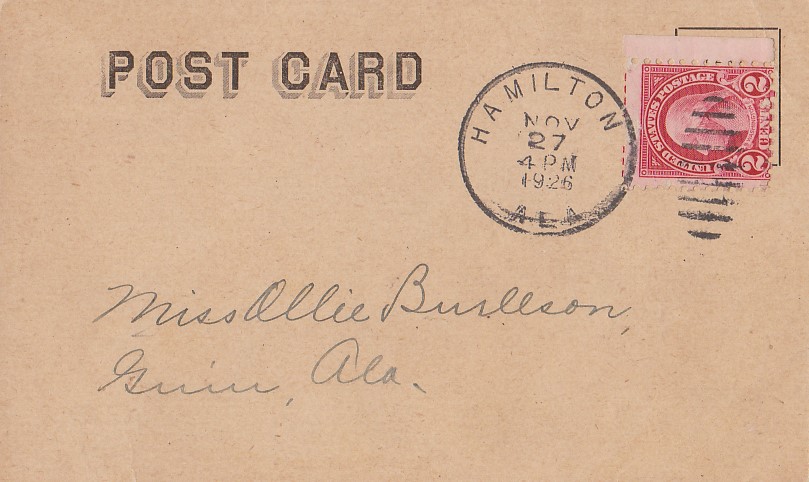 POST CARD
HAMILTON
NOV
27
4 PM
1926
ALA
UNITED STATES POSTAGE
2 2
Miss Ollie Burleson,
Guin, Ala.